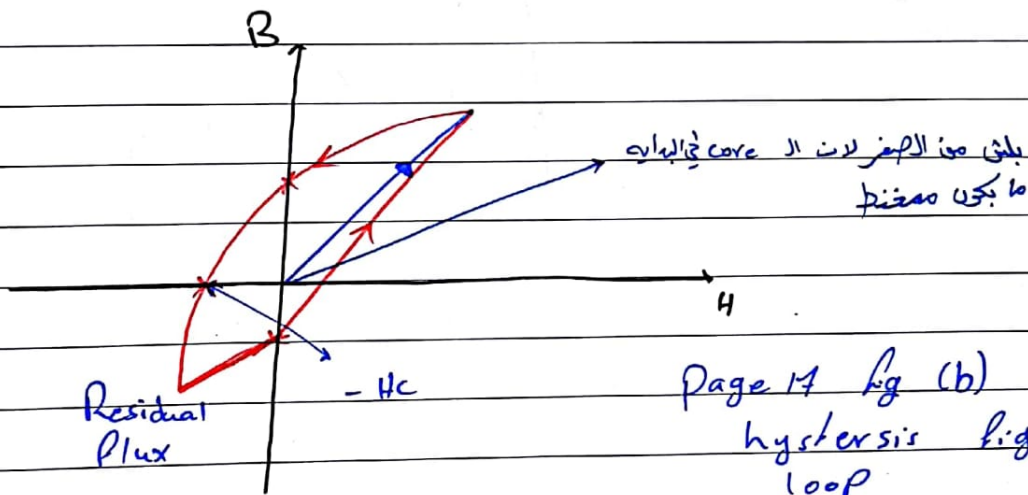 B
بلش من الصفر لان ال core في البدايه
ما بكون ممغنط
H
- Hc
Residual
flux
Page 17 fig (b)
hystersis fig
loop